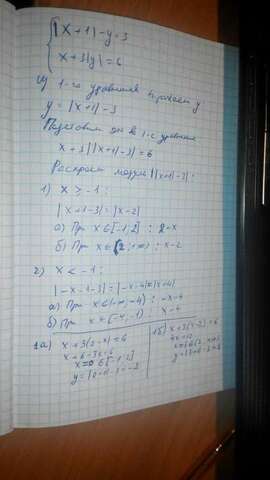 { |x+1|-y=3
x+3|y|=6
1-го уравнения y
y=|x+1|-3
Подставим в 1-е уравнение
x+3||x+1|-3|=6
Раскроем модуль ||x+1|-3|:
1) x > -1:
|x+1-3|=|x-2|
а) При x∈[-1;2] : 2-x
б) При x∈(2;+∞) : x-2
2) x < -1:
|-x-1-3|=|-x-4|=|x+4|
а) При x∈(-∞;-4) : -x-4
б) При x∈(-4;-1) : x+4
1а) x+3(2-x)=6
x+6-3x=6
x=0∈[-1;2]
y=|0+1|-3=-2
1б) x+3(x-2)=6
4x=12